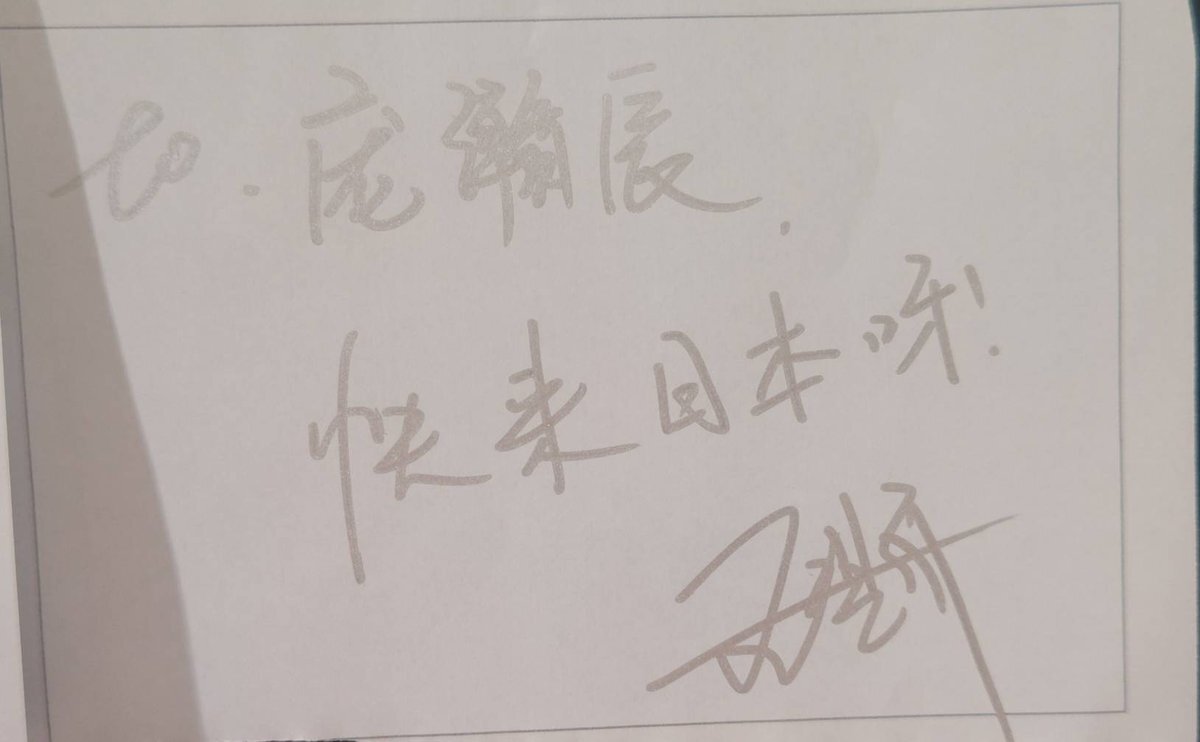 to.庞瀚辰.
快来日本呀!